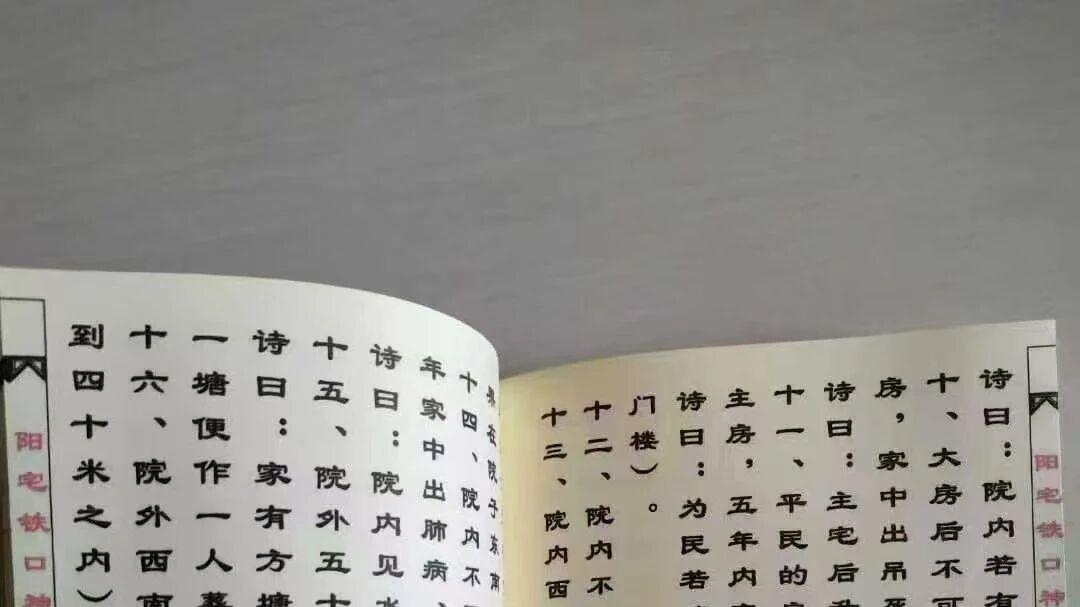 阳宅铁口神
诗曰：院内若有
十、大房后不可
房，家中出吊死
诗曰：主宅后
十一、平民的
主房，五年内
诗曰：为民若
门楼）。
十二、院内不
十三、院内西
在院子东南
十四、院内不
年家中出肺病、
诗曰：院内见水
十五、院外五十
诗曰：家有方塘
一塘便作一人墓
十六、院外西南
到四十米之内）
阳宅铁口神